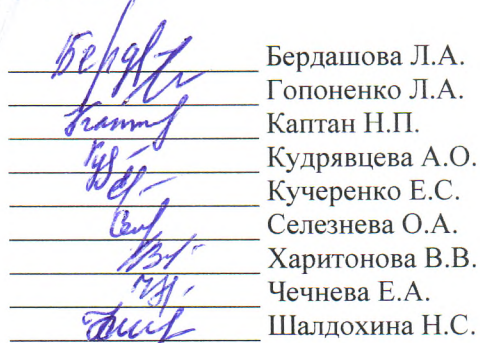 Бердашова Л.А.
Гопоненко Л.А.
Каптан Н.П.
Кудрявцева А.О.
Кучеренко Е.С.
Селезнева О.А.
Харитонова В.В.
Чечнева Е.А.
Шалдохина Н.С.